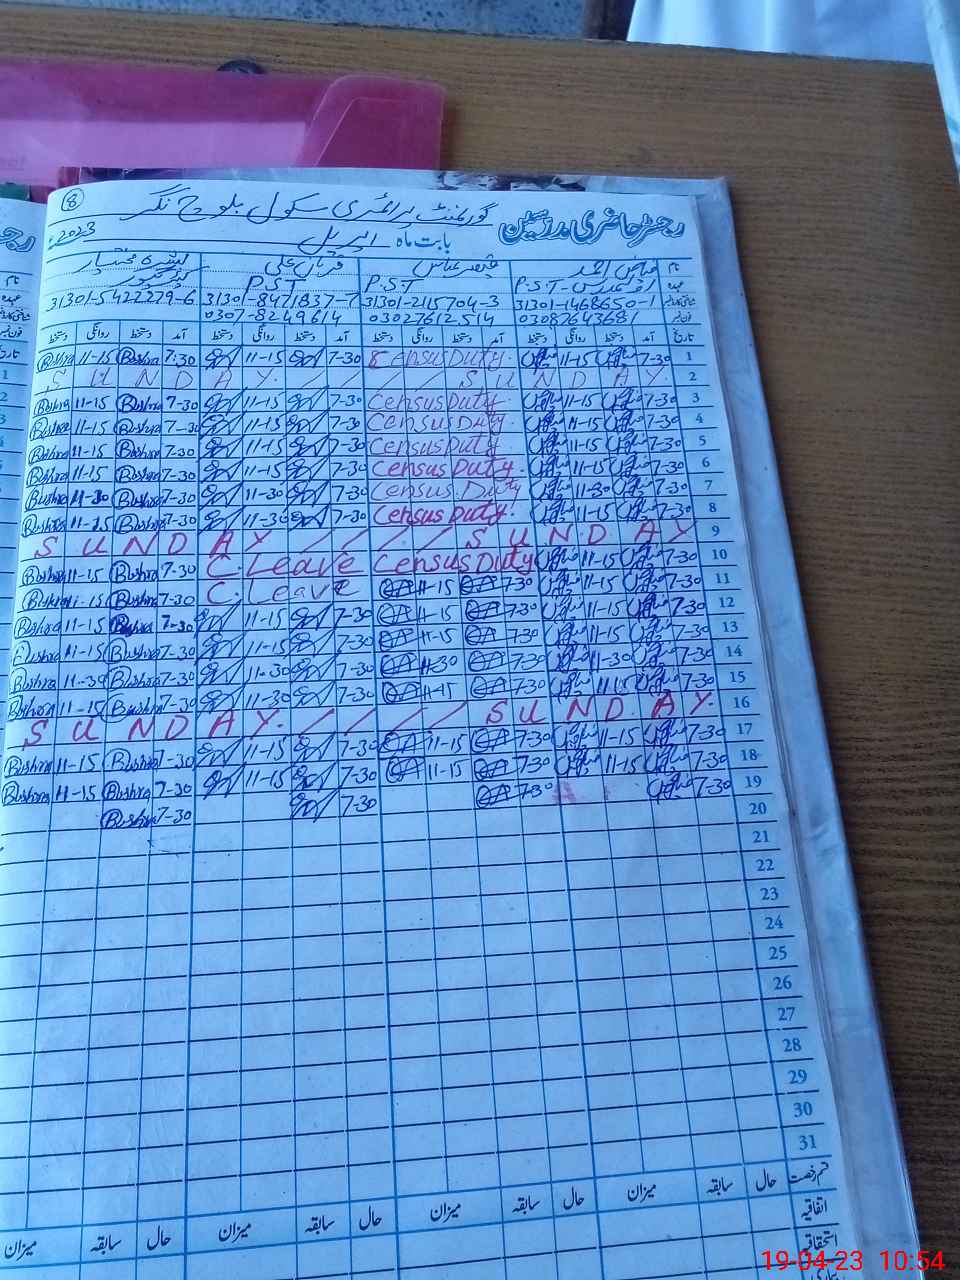 8 گورنمنٹ پرائمری سکول بلوچ نگر رجسٹر حاضری مدرسین
2023ء اپریل بابت ماہ
نام فیاض احمد قیصر عباس قربان علی
عہدہ P.S.T P.S.T P.S.T
31301-1468650-1 31301-2115704-3 31301-8471837-7 31301-5422279-6
03087643681 03027612514 0307-8249614
تاریخ آمد دستخط روانگی دستخط آمد دستخط روانگی دستخط آمد دستخط روانگی دستخط آمد دستخط روانگی دستخط
Bushra 11-15 Bushra 7-30 11-15 7-30 Census Duty 11-15 7-30 1
SUNDAY. / / / / SUNDAY. 2
Bushra 11-15 Bushra 7-30 11-15 7-30 Census Duty 11-15 7-30 3
Bushra 11-15 Bushra 7-30 11-15 7-30 Census Duty 11-15 7-30 4
Bushra 11-15 Bushra 7-30 11-15 7-30 Census Duty 11-15 7-30 5
Bushra 11-15 Bushra 7-30 11-15 7-30 Census Duty 11-15 7-30 6
Bushra 11-30 Bushra 7-30 11-30 7-30 Census Duty 11-30 7-30 7
Bushra 11-15 Bushra 7-30 11-30 7-30 Census Duty 11-15 7-30 8
SUNDAY / / / / SUNDAY 9
Bushra 11-15 Bushra 7-30 C. Leave Census Duty 11-15 7-30 10
Bushra 11-15 Bushra 7-30 C. Leave 11-15 7-30 11-15 7-30 11
Bushra 11-15 Bushra 7-30 11-15 7-30 11-15 7-30 11-15 7-30 12
Bushra 11-15 Bushra 7-30 11-15 7-30 11-15 7-30 11-15 7-30 13
Bushra 11-30 Bushra 7-30 11-30 7-30 11-30 7-30 11-30 7-30 14
Bushra 11-15 Bushra 7-30 11-30 7-30 11-15 7-30 11-15 7-30 15
SUNDAY. / / / / SUNDAY. 16
Bushra 11-15 Bushra 7-30 11-15 7-30 11-15 7-30 11-15 7-30 17
Bushra 11-15 Bushra 7-30 11-15 7-30 11-15 7-30 11-15 7-30 18
Bushra 7-30 7-30 7-30 7-30 19
20
21
22
23
24
25
26
27
28
29
30
31
قسم رخصت حال سابقہ میزان حال سابقہ میزان حال سابقہ میزان حال سابقہ میزان
اتفاقیہ
استحقاقیہ
19-04-23 10:54